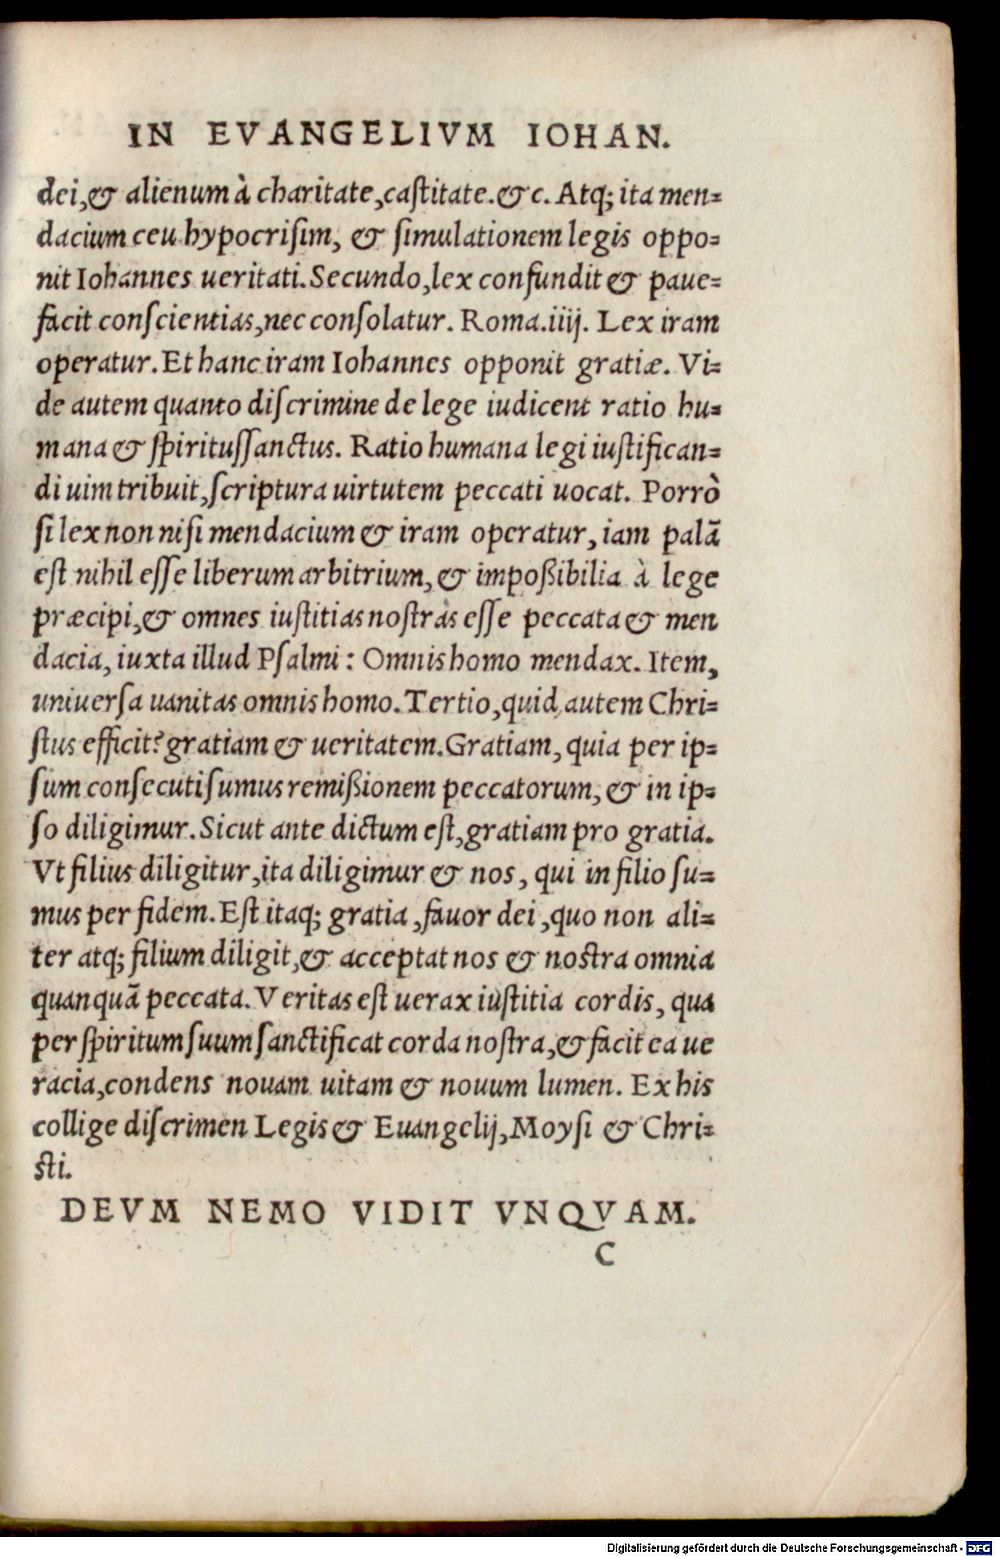 IN EVANGELIVM IOHAN.
dei,& alienum à charitate,castitate.&c. Atq; ita men=
dacium ceu hypocrisim, & simulationem legis oppo=
nit Iohannes ueritati. Secundo,lex confundit & paue=
facit conscientias,nec consolatur. Roma.iiij. Lex iram
operatur. Et hanc iram Iohannes opponit gratiæ. Vi=
de autem quanto discrimine de lege iudicent ratio hu=
mana & spiritussanctus. Ratio humana legi iustifican=
di uim tribuit,scriptura uirtutem peccati uocat. Porrò
si lex non nisi mendacium & iram operatur, iam palã
est nihil esse liberum arbitrium, & impoßibilia à lege
præcipi,& omnes iustitias nostras esse peccata & men
dacia, iuxta illud Psalmi: Omnis homo mendax. Item,
uniuersa uanitas omnis homo. Tertio,quid autem Chri=
stus efficit? gratiam & ueritatem. Gratiam, quia per ip=
sum consecuti sumus remißionem peccatorum, & in ip=
so diligimur. Sicut ante dictum est,gratiam pro gratia.
Vt filius diligitur,ita diligimur & nos, qui in filio su=
mus per fidem. Est itaq; gratia,fauor dei,quo non ali=
ter atq; filium diligit,& acceptat nos & nostra omnia
quanquã peccata. Veritas est uerax iustitia cordis, qua
per spiritum suum sanctificat corda nostra,& facit ea ue
racia,condens nouam uitam & nouum lumen. Ex his
collige discrimen Legis & Euangelij, Moysi & Chri=
sti.
DEVM NEMO VIDIT VNQVAM.
C
Digitalisierung gefördert durch die Deutsche Forschungsgemeinschaft - DFG